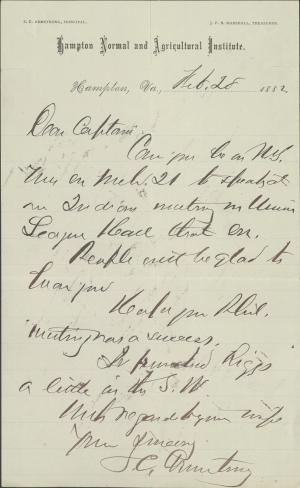 S. C. ARMSTRONG, PRINCIPAL. J. F. B. MARSHALL, TREASURER.
Hampton Normal and Agricultural Institute.
Hampton, Va., Feb. 28 1882
Dear Captain
Can you be in N.Y.
on Mch. 21 to speak at
an Indian meeting in Union
League Hall that eve.
People will be glad to
hear you
Hope your Phil.
meeting was a success.
Riggs
a little in the S. W.
With regards to your wife
Yours sincerely
S C Armstrong